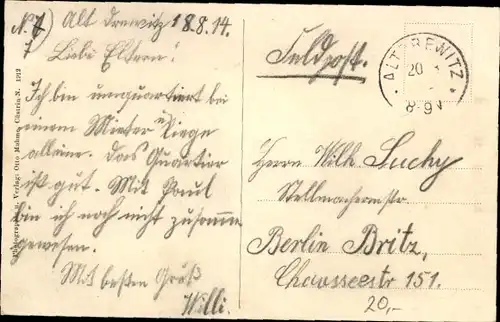 N. 7) Alt Drewitz 18.8.14.
Liebe Eltern!
Ich bin umquartiert bei
einem Mieter u. liege
alleine. Das Quartier
ist gut. Mit Paul
bin ich noch nicht zusamm
gewesen.
Mit besten Gruß
Willi.
Feldpost.
ALTDREWITZ
20
8-9
Herrn Wilh. Luchy
Stellmachermstr.
Berlin Britz,
Chausseestr 151.
20,-
Verlag: Otto Mahno, Cüstrin N. 1912